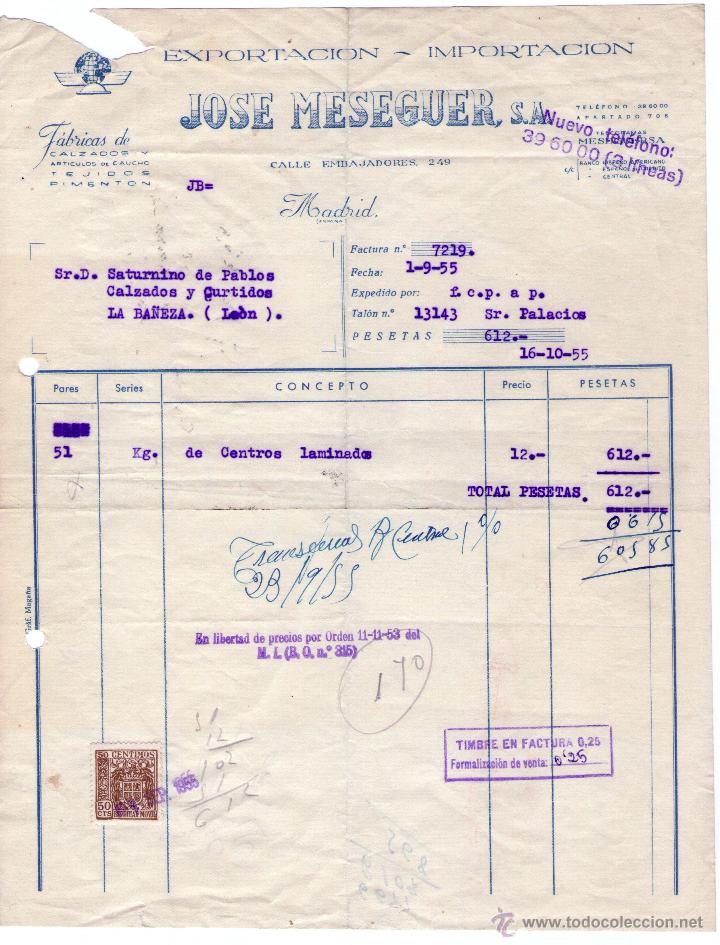 EXPORTACION - IMPORTACION
JOSE MESEGUER, S.A.
TELÉFONO 396000
APARTADO 705
TELEGRAMAS
Nuevo teléfono:
39 60 00 (3 líneas)
Fábricas de
CALZADOS Y
ARTICULOS DE CAUCHO
TEJIDOS
PIMENTON
CALLE EMBAJADORES, 249
c/c
CENTRAL
JB=
Madrid,
(ESPAÑA)
Sr.D. Saturnino de Pablos
Calzados y Curtidos
LA BAÑEZA. ( León ).
Factura n.º 7219.
Fecha: 1-9-55
Expedido por: f.c.p.a p.
Talón n.º 13143 Sr. Palacios
PESETAS 612.-
16-10-55
Pares Series CONCEPTO Precio PESETAS
51 Kg. de Centros laminados 12.- 612.-
TOTAL PESETAS. 612.-
0615
60585
Central 1 %
23/9/55
Gráf. Magaña
En libertad de precios por Orden 11-11-53 del
M. I. (B. O. n.º 315)
170
TIMBRE EN FACTURA 0,25
Formalización de venta: 0'25
50 CENTIMOS
50 CTS
ESPECIAL MOVIL
1955
51
12
102
612
© www.todocoleccion.net